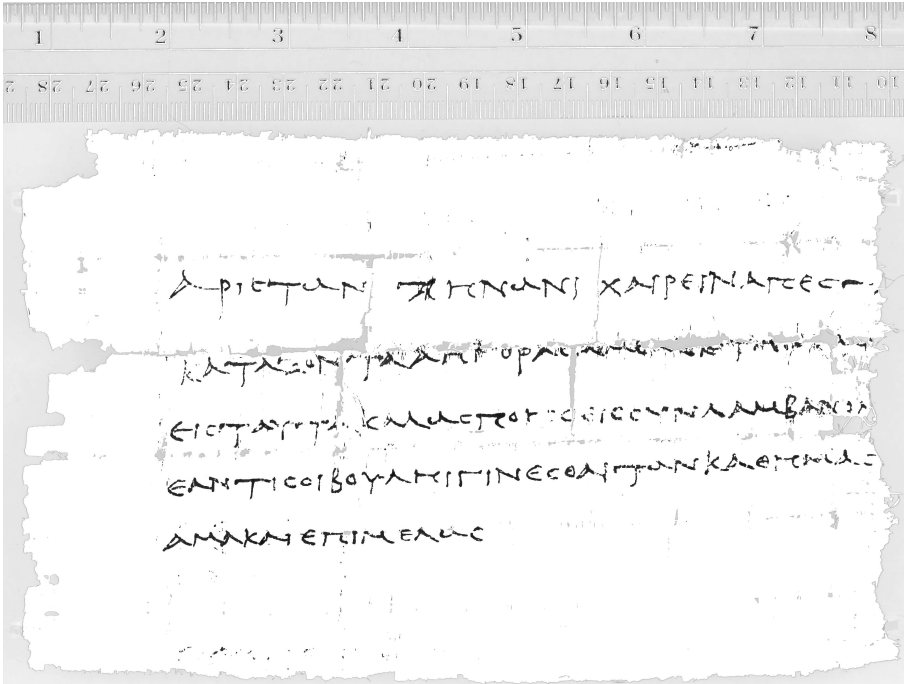 1 2 3 4 5 6 7 8
28 27 26 25 24 23 22 21 20 19 18 17 16 15 14 13 12 11 10
ΑΡΙϹΤΩΝ ΖΗΝΩΝΙ ΧΑΙΡΕΙΝ ΑΠΕϹΤ
ΚΑΤΑΞΟΝΤΑ
ΕΙϹ ΤΑΥΤΑ ΚΑΛΩϹ ΠΟΙΗϹΕΙϹ ϹΥΝΛΑΜΒΑΝΟΜ
ΕΑΝ ΤΙ ϹΟΙ ΒΟΥΛΗΙ ΓΙΝΕϹΘΑΙ ΤΩΝ ΚΑΘ ΗΜΑϹ
ΑΜΑ ΚΑΙ ΕΠΙΜΕΛΩϹ